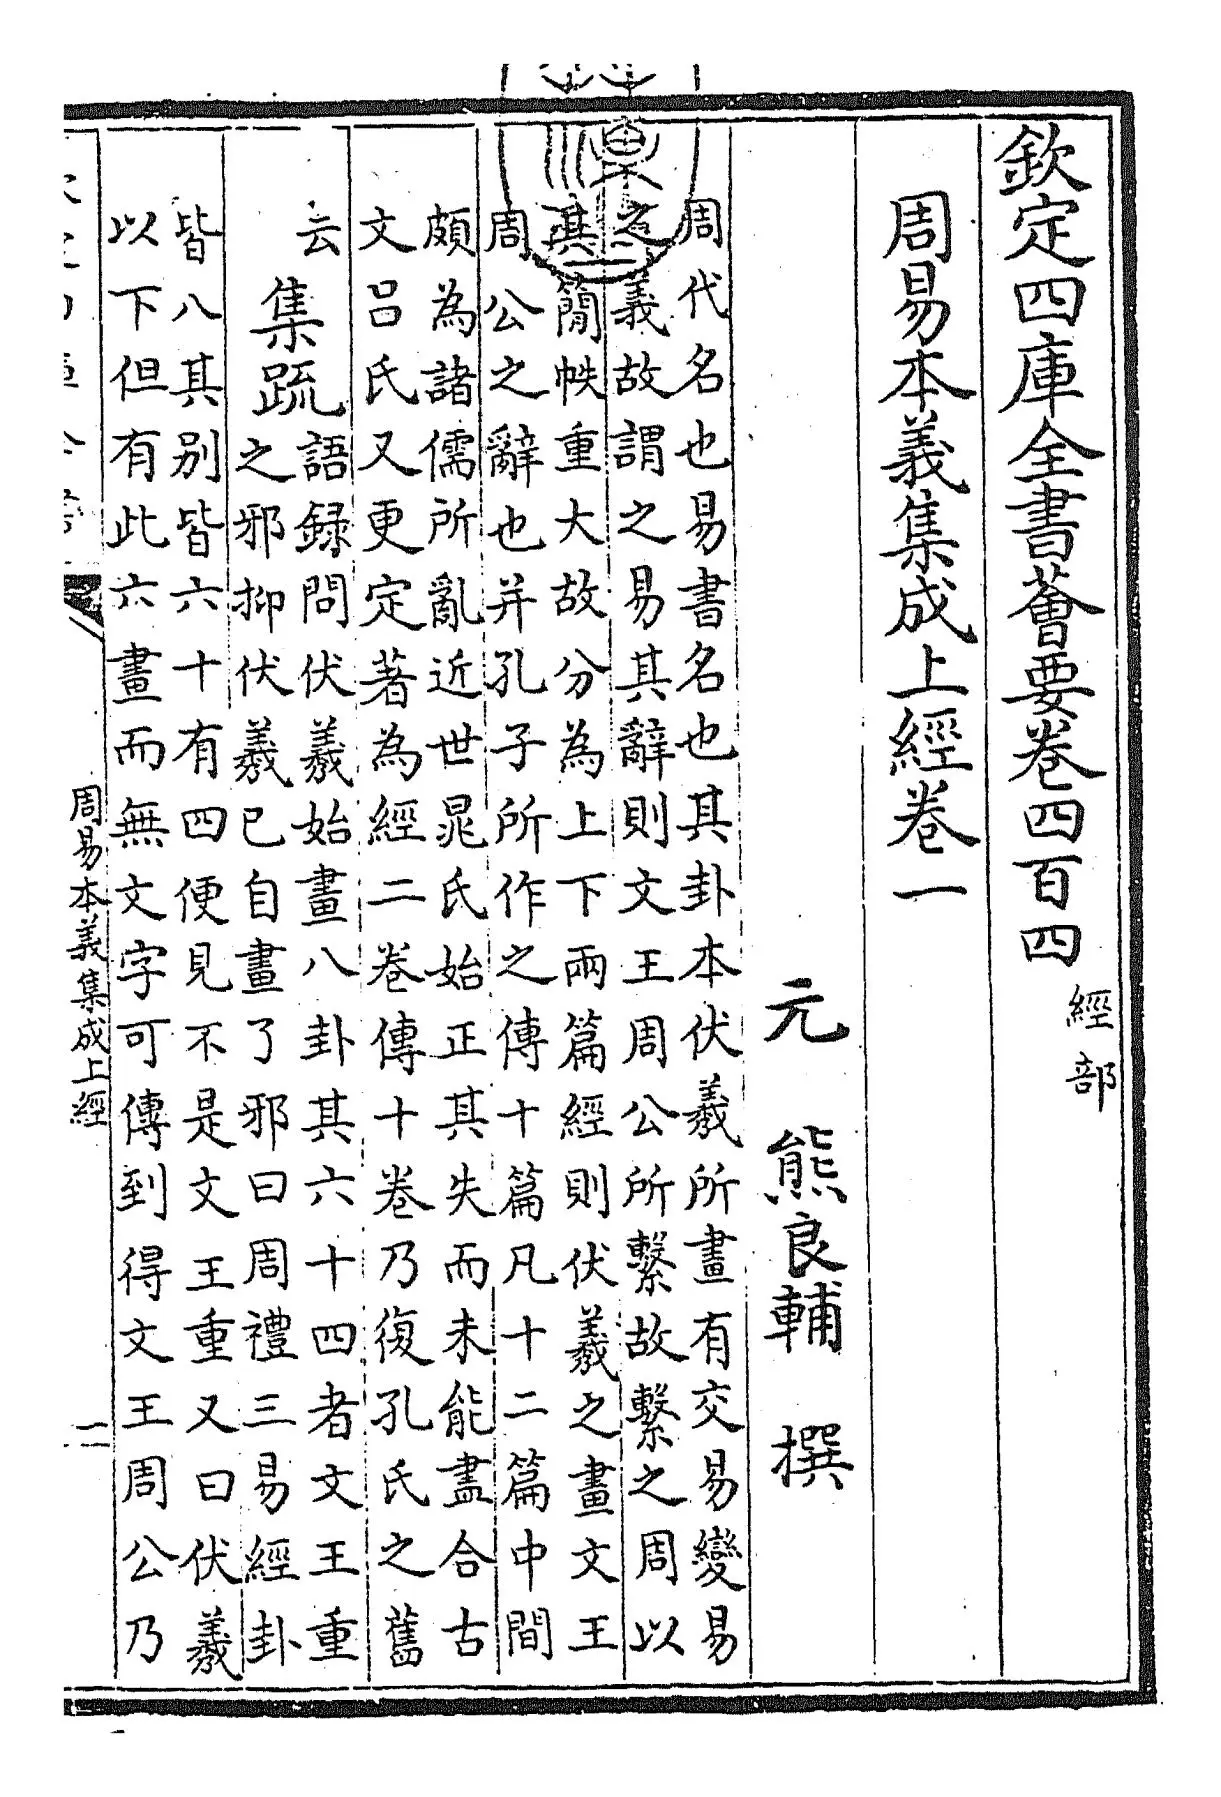 欽定四庫全書薈要卷四百四 經部
周易本義集成上經卷一
元 熊良輔 撰
周代名也易書名也其卦本伏羲所畫有交易變易
之義故謂之易其辭則文王周公所繫故繫之周以
其簡帙重大故分為上下兩篇經則伏羲之畫文王
周公之辭也并孔子所作之傳十篇凡十二篇中間
頗為諸儒所亂近世晁氏始正其失而未能盡合古
文吕氏又更定著為經二卷傳十卷乃復孔氏之舊
云
集䟽
語録問伏羲始畫八卦其六十四者文王重
之邪抑伏羲已自畫了邪曰周禮三易經卦
皆八其别皆六十有四便見不是文王重又曰伏羲
以下但有此六畫而無文字可傳到得文王周公乃
周易本義集成上經
一